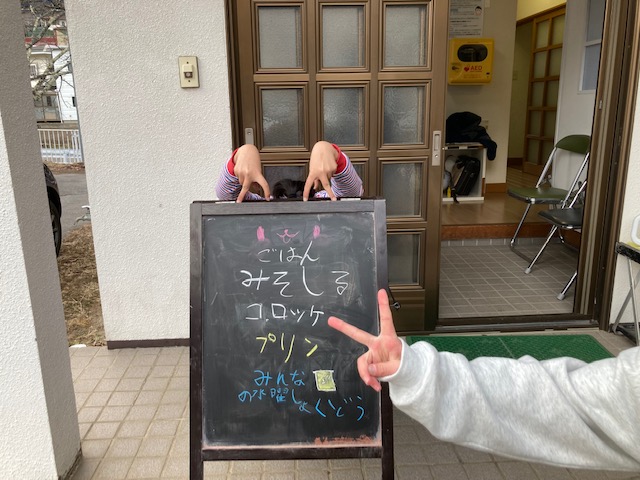 ごはん
みそしる
コロッケ
プリン
みんな
の水曜しょくどう
AED